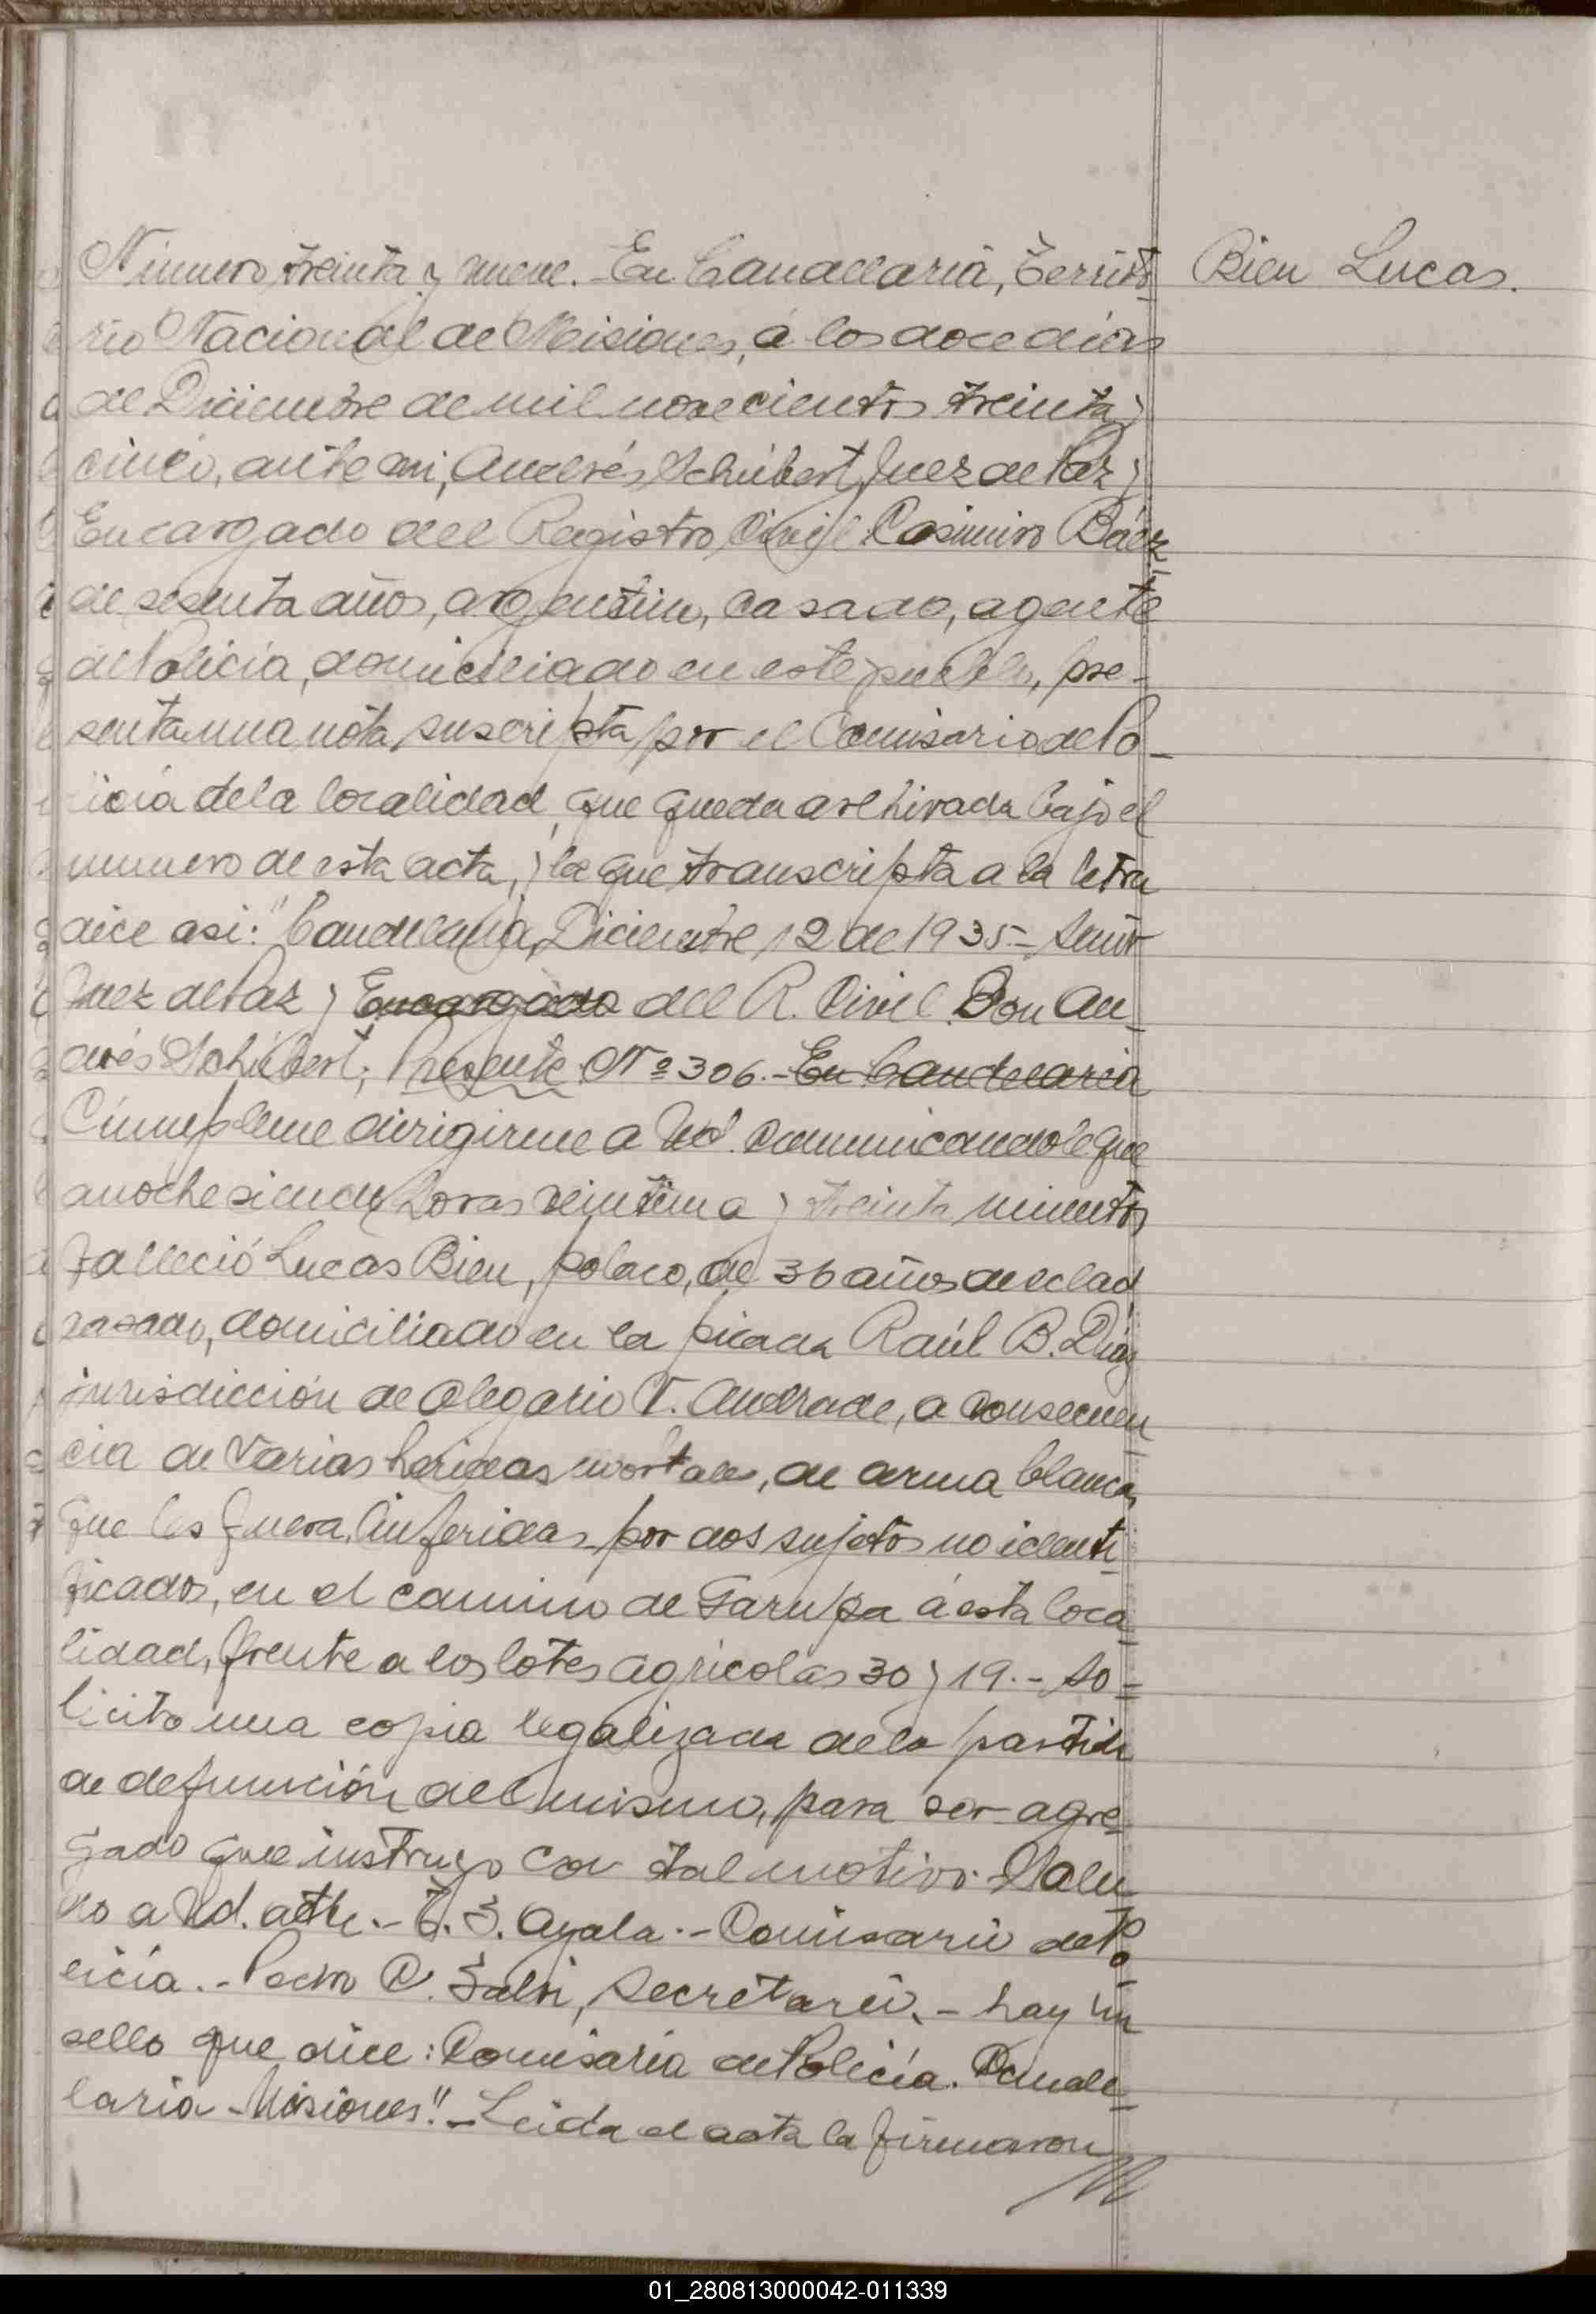 Número treinta y nueve. - En Candelaria, Territo- Bien Lucas.
rio Nacional de Misiones, á los doce dias
de Diciembre de mil novecientos treinta y
cinco, ante mi, Andrés Schubert, Juez de Paz y
Encargado del Registro Civil Casimiro Báez
de sesenta años, argentino, casado, agente
de Policía, domiciliado en este pueblo, pre-
senta una nota suscripta por el Comisario de Po-
licia de la localidad, que queda archivada bajo el
numero de esta acta, y la que transcripta a la letra
dice asi: "Candelaria, Diciembre 12 de 1935.- Señor
Juez de Paz y Encargado del R. Civil Don An-
drés Schubert, Presente Nº 306.- En Candelaria
Cúmpleme dirigirme a Ud. comunicandole que
anoche siendo horas veintiuna y treinta minutos
falleció Lucas Bien, polaco, de 36 años de edad,
casado, domiciliado en la picada Raúl B. Díaz
jurisdicción de Olegario V. Andrade, a consecuen-
cia de varias heridas mortales, de arma blanca,
que les fuera inferidas por dos sujetos no identi-
ficados, en el camino de Garupa á esta loca-
lidad, frente a los lotes agricolas 30 y 19.- So-
licito una copia legalizada de la partida
de defunción del mismo, para ser agre-
gado que instruyo con tal motivo. Salu-
do a Ud. atte.- Ayala.- Comisario de Po-
licía.- Pedro C. Secretario.- hay un
sello que dice: Comisaria de Policía. Cande-
laria - Misiones".- Leida el acta la firmaron